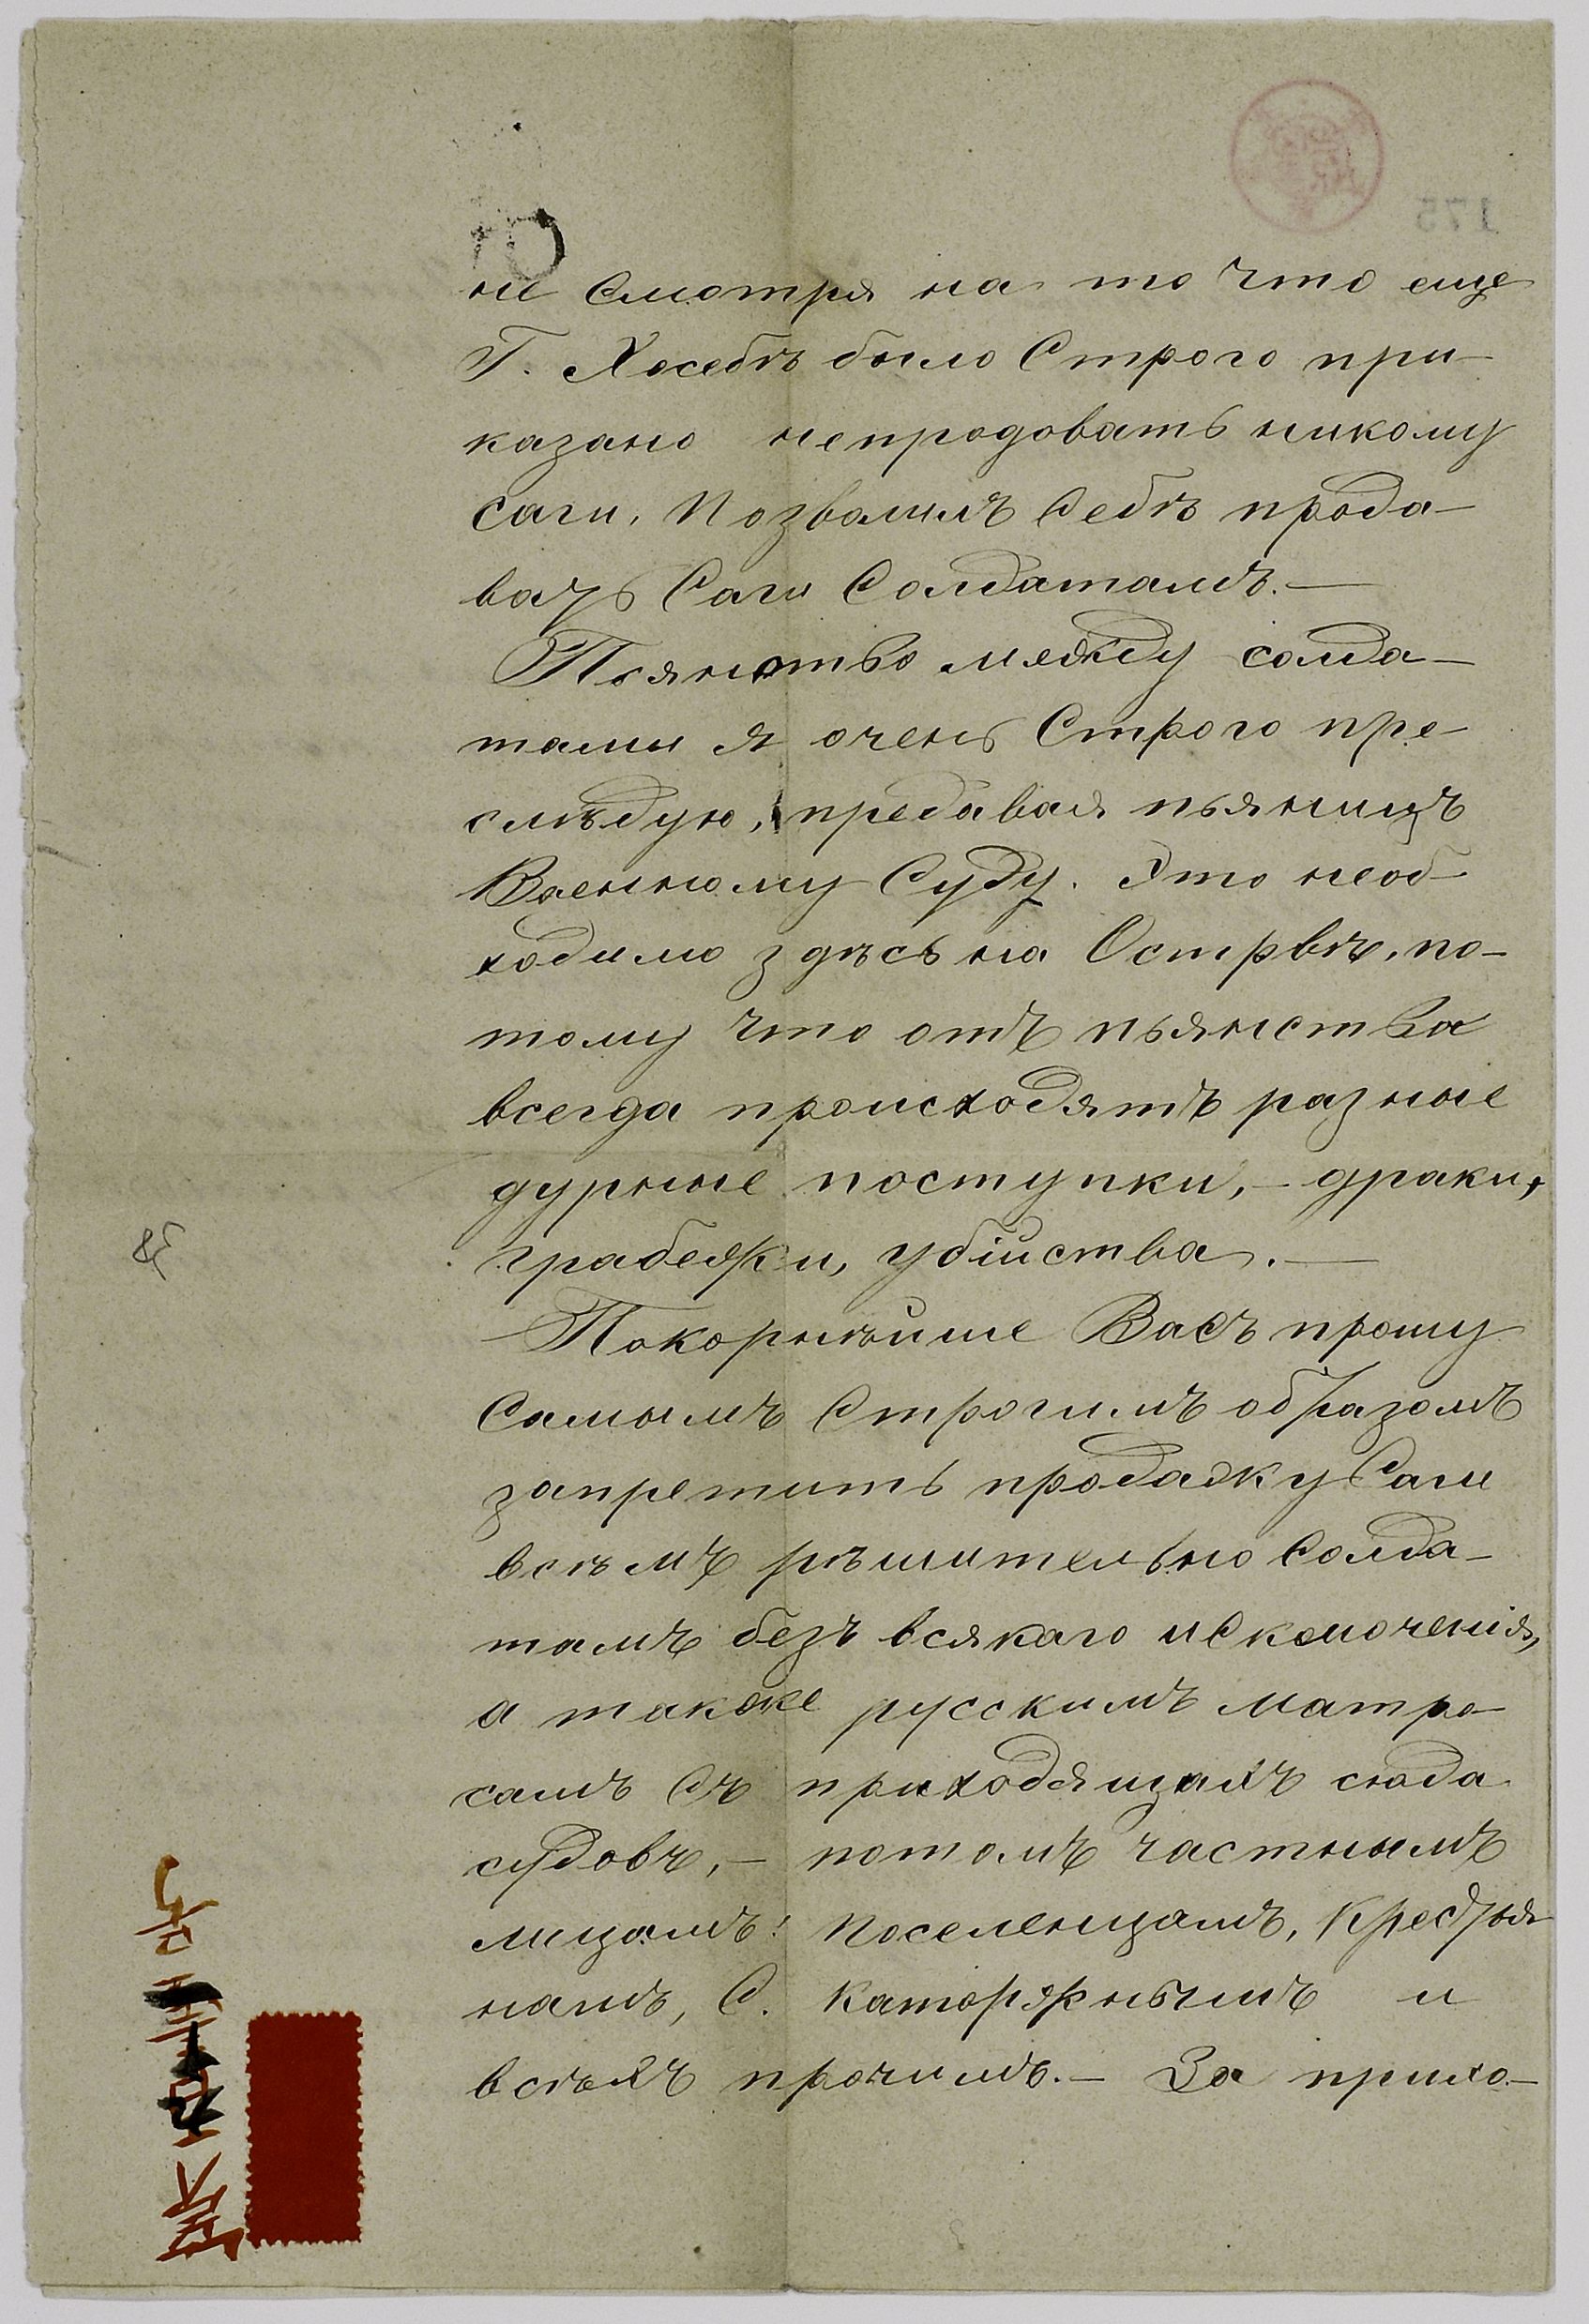 не смотря на то что еще
Г. Хосебѣ было Строго при-
казано непродовать никому
саги, Позволилъ Себѣ прода-
вать Саги Солдатамъ.—
Пьянство между солда-
тами я очень Строго пре-
слѣдую, предавая пьяницъ
Военному Суду. Это необ-
ходимо здѣсь на Острвѣ, по-
тому что отъ пьянства
всегда происходятъ разные
дурные поступки,- драки,
грабежи, убійства.—
Покорнѣйше Васъ прошу
Самымъ Строгимъ образомъ
запретить продажу Саги
всѣмъ рѣшительно Солда-
тамъ безъ всякаго исключенія,
а также русскимъ матро-
самъ Съ приходящихъ сюда
судовъ,- потомъ частнымъ
лицамъ: Поселенцамъ, Крестья
намъ, С. Каторжнымъ и
всѣмъ прочимъ.- За прихо-